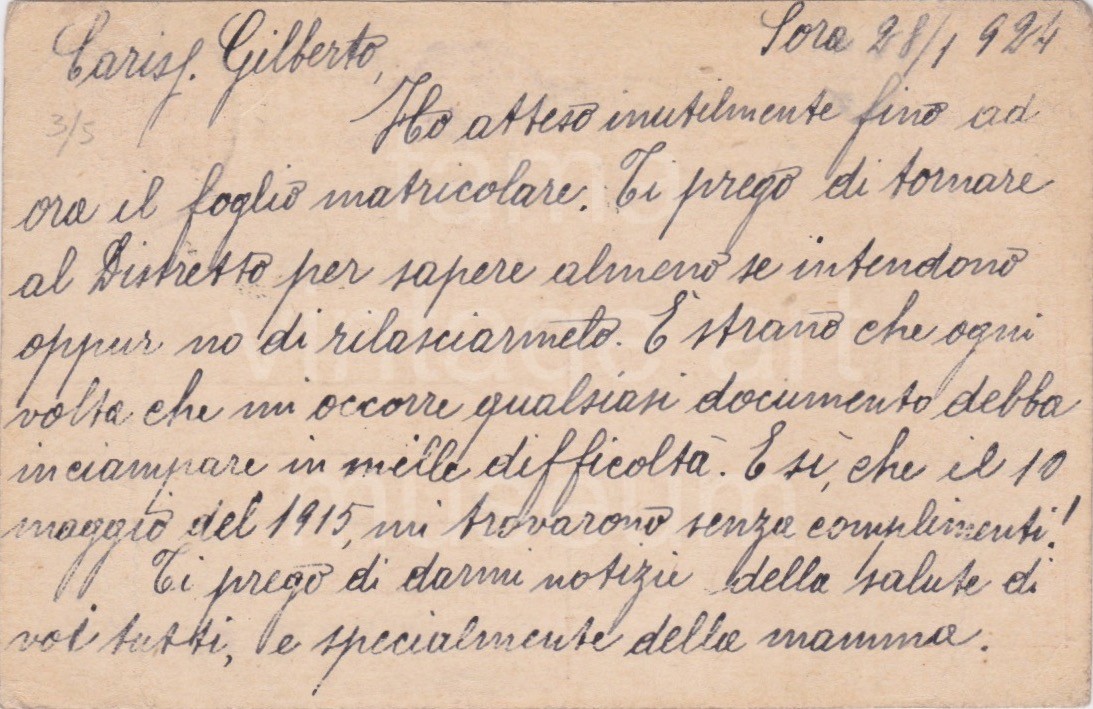 Sora 28/1 924
Cariss. Gilberto,
3/5
Ho atteso inutilmente fino ad
ora il foglio matricolare. Ti prego di tornare
al Distretto per sapere almeno se intendono
oppur no di rilasciarmelo. È strano che ogni
volta che mi occorre qualsiasi documento debba
inciampare in mille difficoltà. E sì, che il 10
maggio del 1915, mi trovarono senza complimenti!
Ti prego di darmi notizie della salute di
voi tutti, e specialmente della mamma.
fama
vintage art
museum